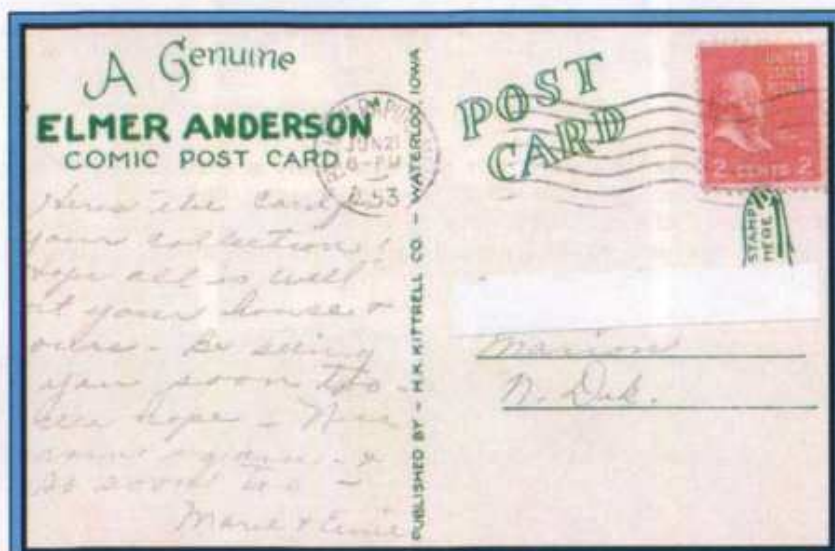 A Genuine
ELMER ANDERSON
COMIC POST CARD
JUN 21
6-PM
1953
the card
your collection!
Hope all is well
at your house &
ours - Be seeing
you soon too -
hope -
soon
Marie & Ernie
PUBLISHED BY - H.K. KITTRELL CO. - WATERLOO, IOWA
POST
CARD
UNITED
STATES
2 CENTS 2
STAMP
HERE
Marion
N. Dak.